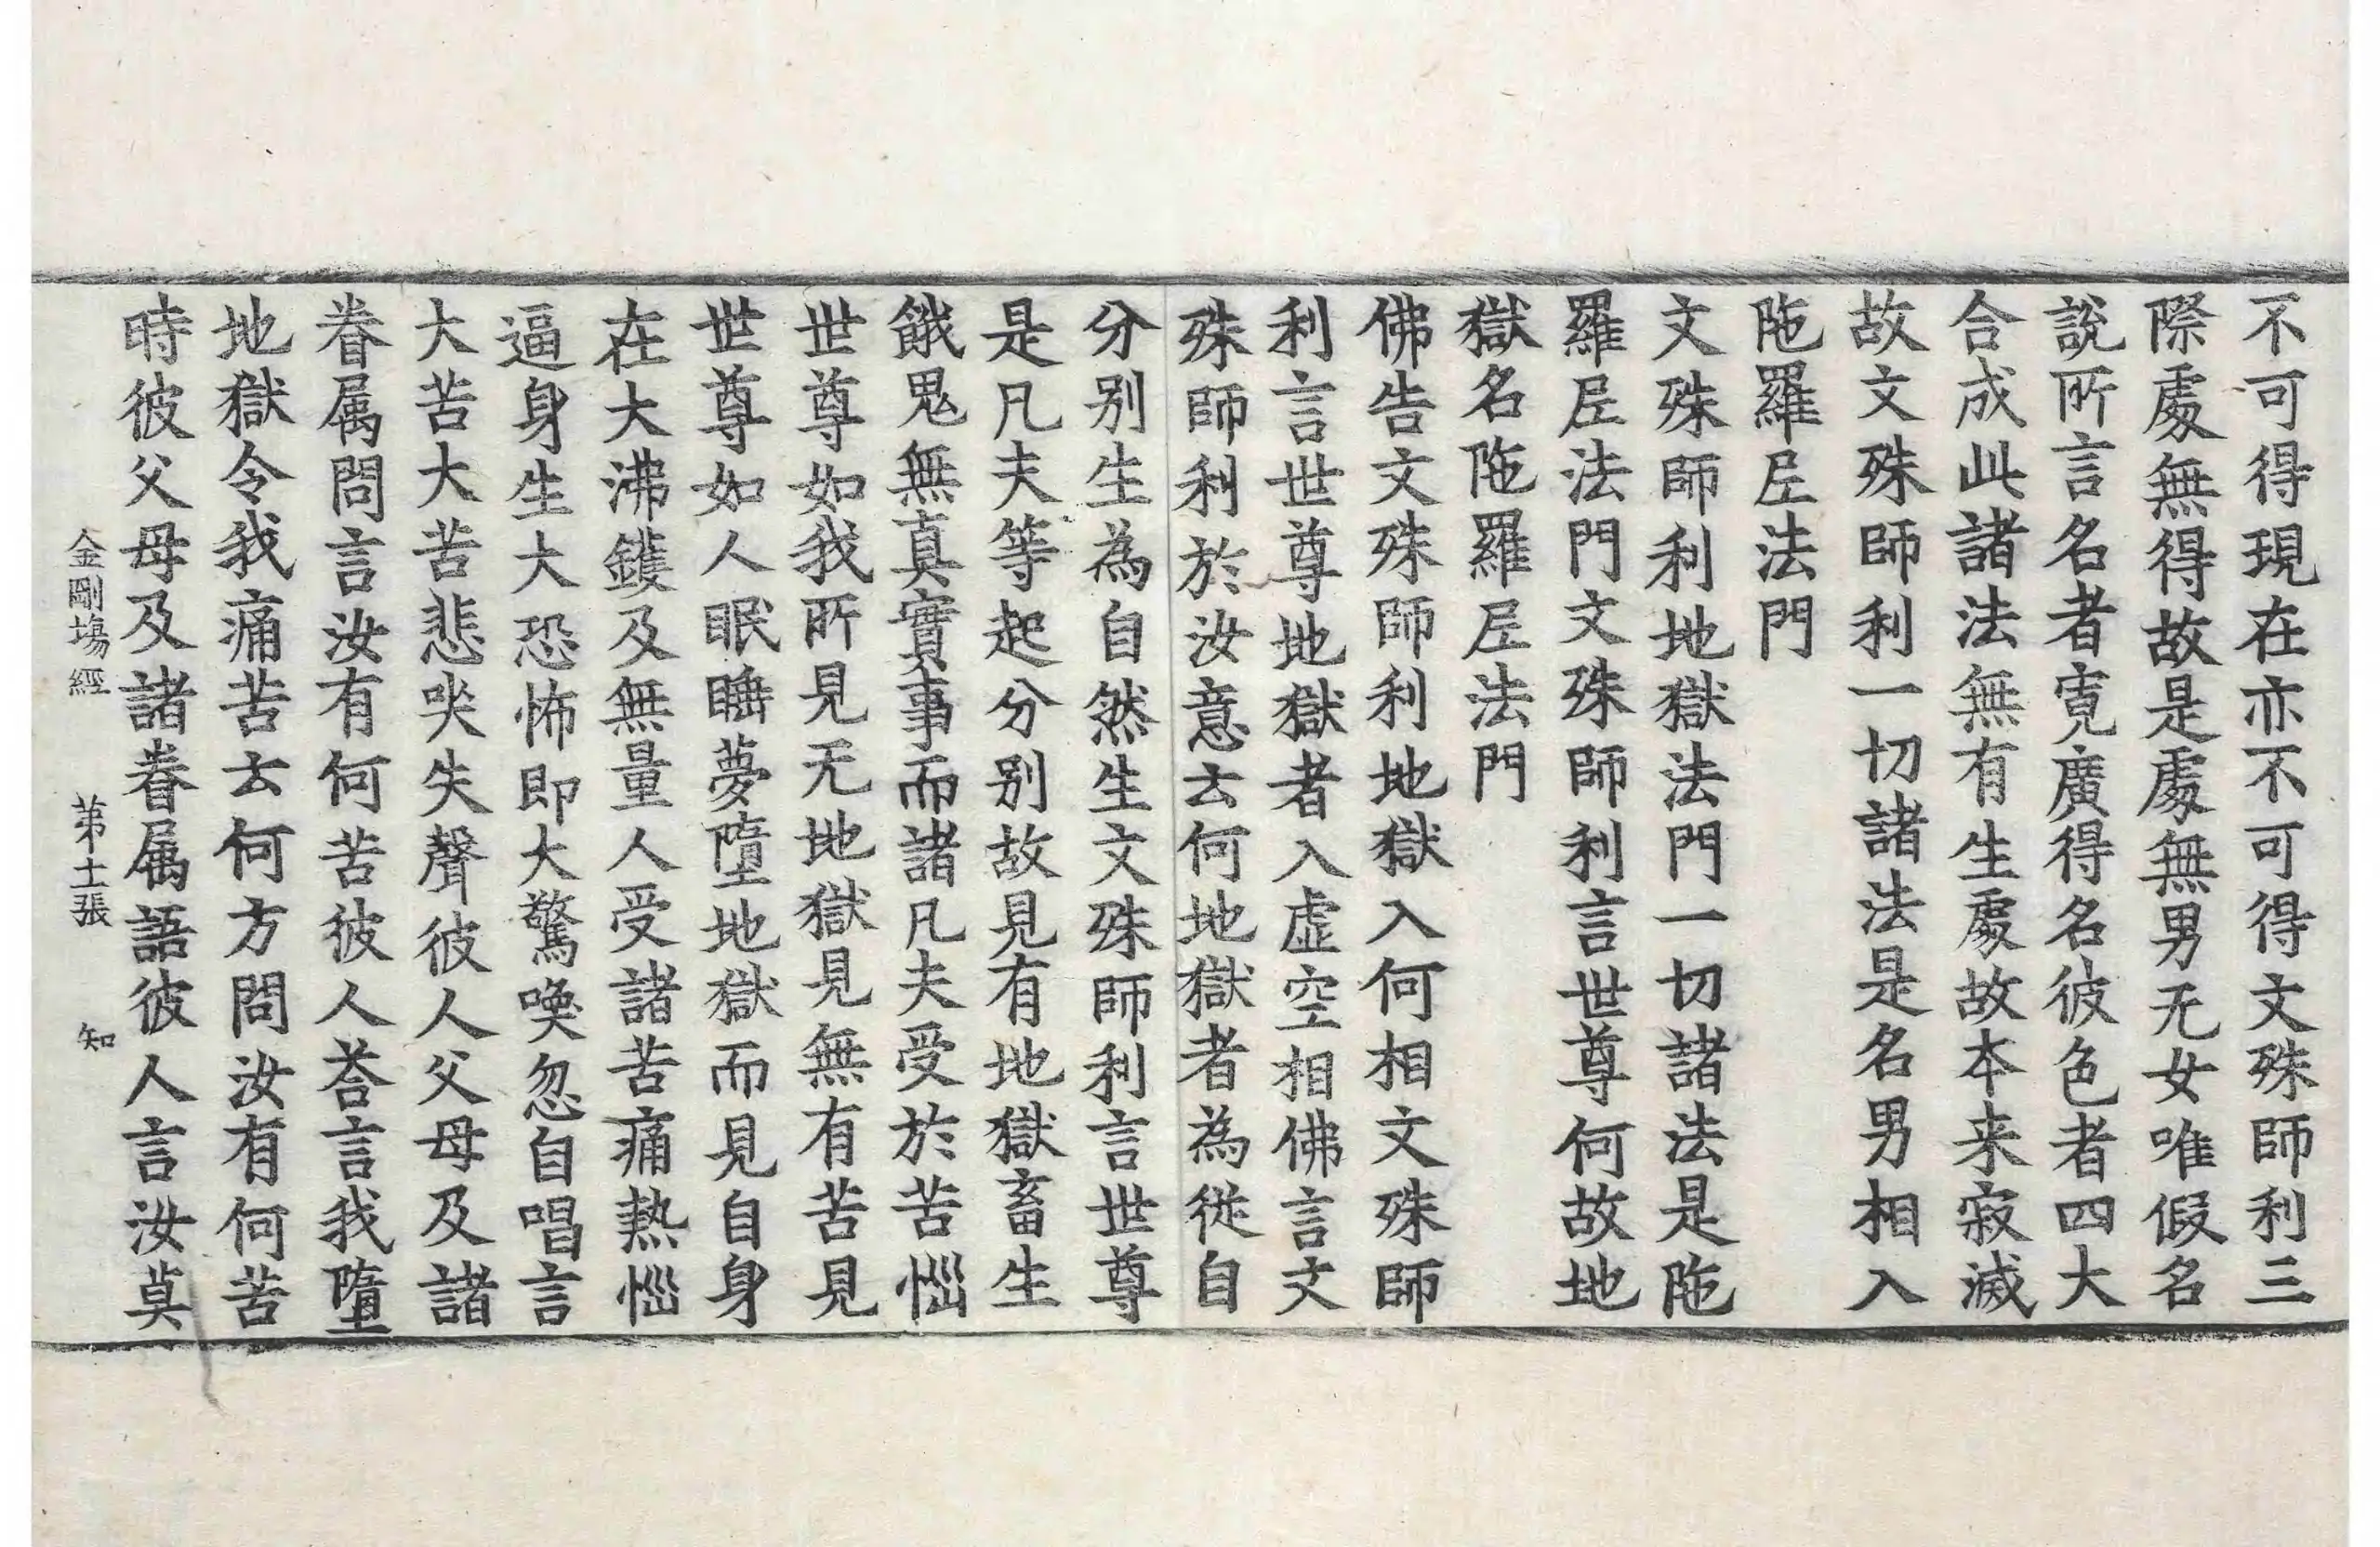 不可得現在亦不可得文殊師利三
際處無得故是處無男无女唯假名
說所言名者寛廣得名彼色者四大
合成此諸法無有生處故本来寂滅
故文殊師利一切諸法是名男相入
陁羅𡰱法門
文殊師利地獄法門一切諸法是陁
羅𡰱法門文殊師利言世尊何故地
獄名陁羅𡰱法門
佛告文殊師利地獄入何相文殊師
利言世尊地獄者入虛空相佛言文
殊師利於汝意云何地獄者為從自
分别生為自然生文殊師利言世尊
是凡夫等起分别故見有地獄畜生
餓鬼無真實事而諸凡夫受於苦惱
世尊如我所見无地獄見無有苦見
世尊如人眠睡夢墮地獄而見自身
在大沸鑊及無量人受諸苦痛熱惱
逼身生大恐怖即大驚喚忽自唱言
大苦大苦悲哭失聲彼人父母及諸
眷属問言汝有何苦彼人荅言我墮
地獄令我痛苦云何方問汝有何苦
時彼父母及諸眷属語彼人言汝莫
金剛塲經 苐十一張 知